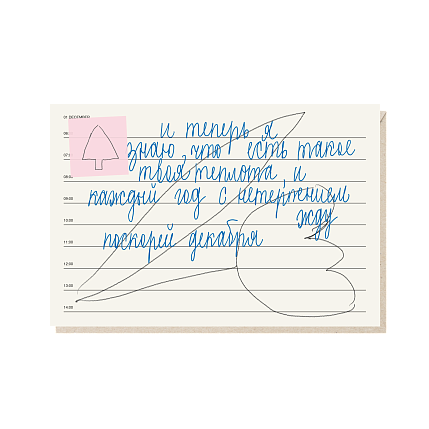 01 DECEMBER
и теперь я
знаю, что есть такое
твоя теплота, и
каждый год с нетерпением
жду
поскорей декабря
06:00
07:00
08:00
09:00
10:00
11:00
12:00
13:00
14:00